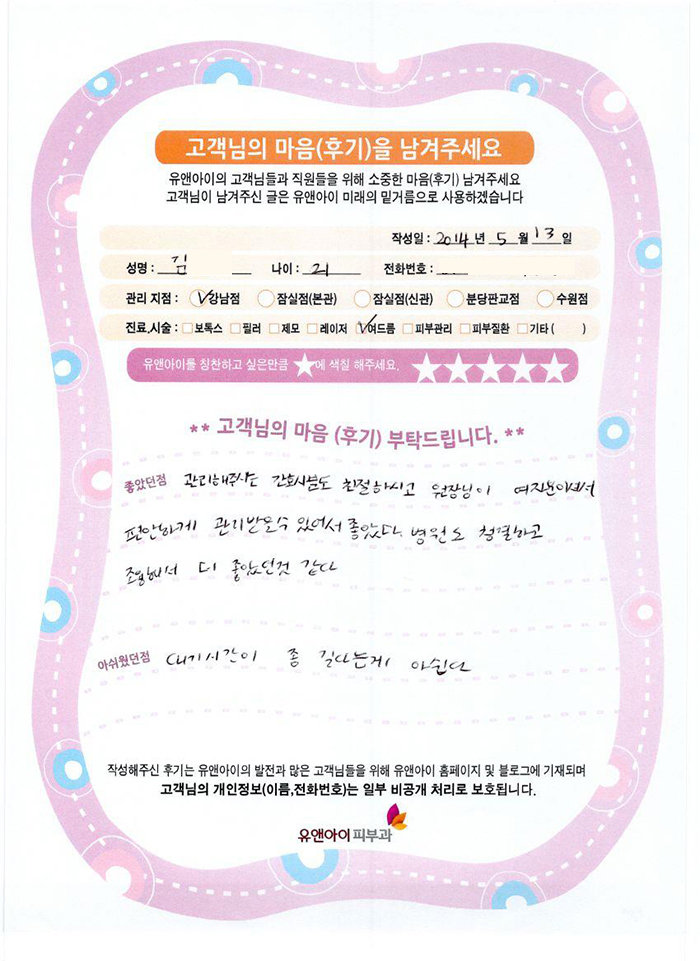 고객님의 마음(후기)을 남겨주세요
유앤아이의 고객님들과 직원들을 위해 소중한 마음(후기) 남겨주세요
고객님이 남겨주신 글은 유앤아이 미래의 밑거름으로 사용하겠습니다
작성일 : 2014 년 5 월 13 일
성명 : 김 나이 : 21 전화번호 :
관리 지점 : 강남점 잠실점(본관) 잠실점(신관) 분당판교점 수원점
진료,시술 : 보톡스 필러 제모 레이저 여드름 피부관리 피부질환 기타 ( )
유앤아이를 칭찬하고 싶은만큼 ★에 색칠 해주세요. ★★★★★
** 고객님의 마음 (후기) 부탁드립니다. **
좋았던점 관리해주시는 간호사분들도 친절하시고 원장님이 여자분이셔서
편안하게 관리받을수 있어서 좋았다. 병원도 청결하고
조용해서 더 좋았던것 같다
아쉬웠던점 대기시간이 좀 길다는게 아쉽다
작성해주신 후기는 유앤아이의 발전과 많은 고객님들을 위해 유앤아이 홈페이지 및 블로그에 기재되며
고객님의 개인정보(이름,전화번호)는 일부 비공개 처리로 보호됩니다.
유앤아이피부과